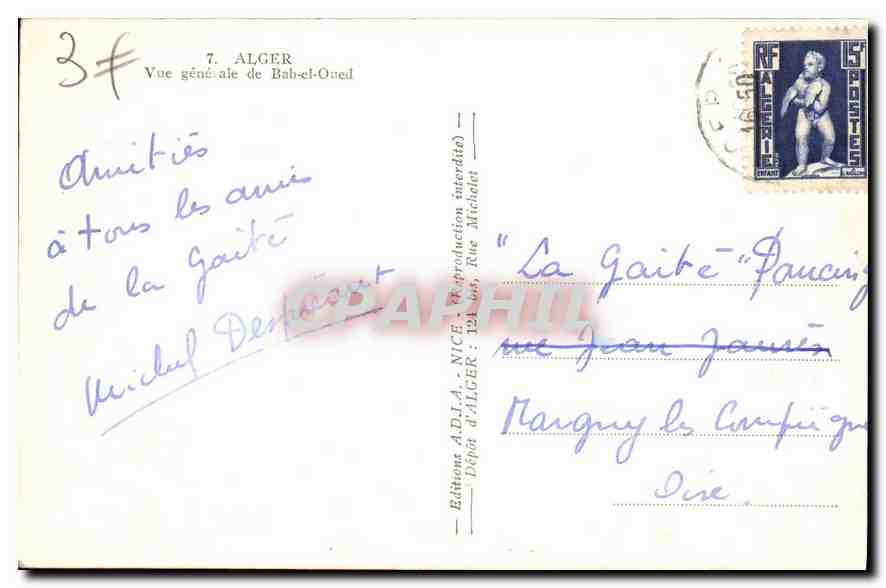 3F
7. ALGER
Vue générale de Bab-el-Oued
Amitiés
à tous les amis
de la Gaîté
Michel
— Editions A.D.I.A. - NICE - (Reproduction interdite) —
Dépôt d'ALGER : 124 bis, Rue Michelet
RF
15F
ALGERIE
POSTES
ENFANT
"La Gaité" Dancing
rue Jean Jaurès
Margny les Compiègne
Oise.
CPAPHIL